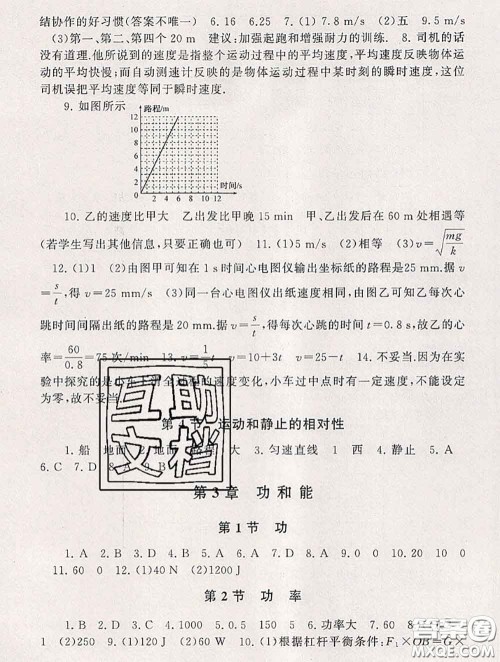 结协作的好习惯(答案不唯一) 6.16 6.25 7.(1)7.8 m/s (2)五 9.5 m/s
(3)第一、第二、第四个20 m 建议:加强起跑和增强耐力的训练. 8.司机的话
没有道理.他所说到的速度是指整个运动过程中的平均速度,平均速度反映物体运
动的平均快慢;而自动测速计反映的是物体运动过程中某时刻的瞬时速度,这位
司机误把平均速度等同于瞬时速度.
9.如图所示
路程/m
12
10
8
6
4
2
0 2 4 6 8 10 12
时间/s
10.乙的速度比甲大 乙出发比甲晚15 min 甲、乙出发后在60 m处相遇等
(若学生写出其他信息,只要正确也可) 11.(1)5 (2)相等 (3)v=√(mg/k)
12.(1)1 (2)由图甲可知在1 s时间心电图仪输出坐标纸的路程是25 mm.据v=
s/t,得v=25 mm/s (3)同一台心电图仪出纸速度相同,由图乙可知乙每次心
跳时间间隔出纸的路程是20 mm.据v=s/t,得每次心跳的时间t=0.8 s,故乙的心
率=60/0.8=75次/min 13.v=1/5 t v=10+3t v=25-t 14.不妥当.因为在实
验中探究的是小车 速度变化,小车过中点时有一定速度,不能设定
为零,故不妥当.
第4节 运动和静止的相对性
1.船 地面 2.地面 大 3.匀速直线 1 西 4.静止 5.A
6.C 7.D 8. 9.
互助
文档
第3章 功和能
第1节 功
1.A 2.B 3.D 4.B 5.A 6.A 7.B 8.50 0 9.0 10.20 10 0
11.60 0 12.(1)40 N (2)1200 J
第2节 功 率
1.B 2.D 3.C 4.1000 5.0.5 150 5 6.功率大 7.B 8.
1 (2)250 9.(1)120 J (2)60 W 10.(1)根据杠杆平衡条件:F₁×OB=G×
答案圈
MXQE.COM